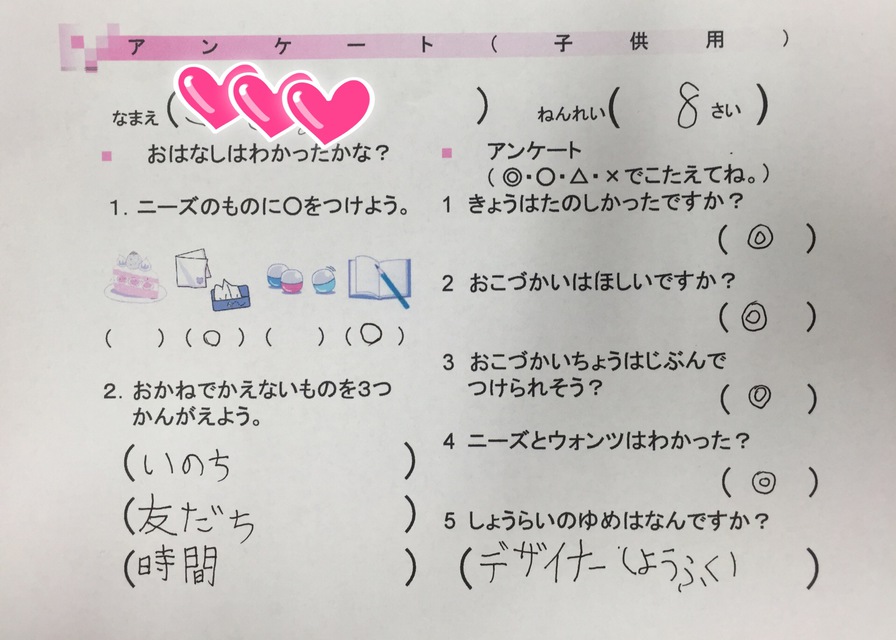 アンケート(子供用)
なまえ( )
ねんれい( 8さい )
■ おはなしはわかったかな？
1. ニーズのものに〇をつけよう。
( ) (〇) ( ) (〇)
2. おかねでかえないものを3つ
かんがえよう。
(いのち)
(友だち)
(時間)
■ アンケート
(◎・〇・△・×でこたえてね。)
1 きょうはたのしかったですか？
(◎)
2 おこづかいはほしいですか？
(◎)
3 おこづかいちょうはじぶんで
つけられそう？
(◎)
4 ニーズとウォンツはわかった？
(◎)
5 しょうらいのゆめはなんですか？
(デザイナー(ようふく))